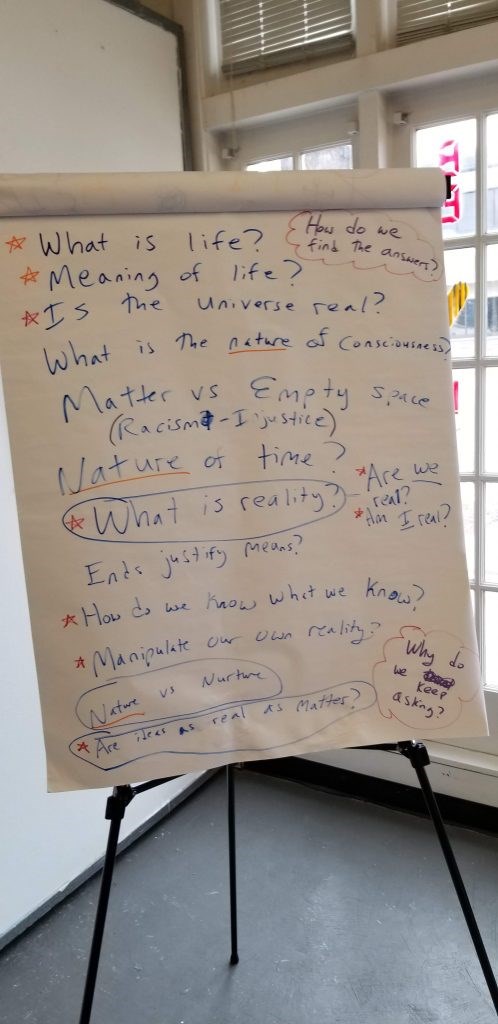 What is life?
How do we
find the answers?
Meaning of life?
Is the universe real?
What is the nature of consciousness?
Matter vs Empty space
(Racism - Injustice)
Nature of time?
What is reality?
Are we
real?
Am I real?
Ends justify means?
How do we know what we know?
Manipulate our own reality?
Why do
we keep
asking?
Nature vs Nurture
Are ideas as real as Matter?